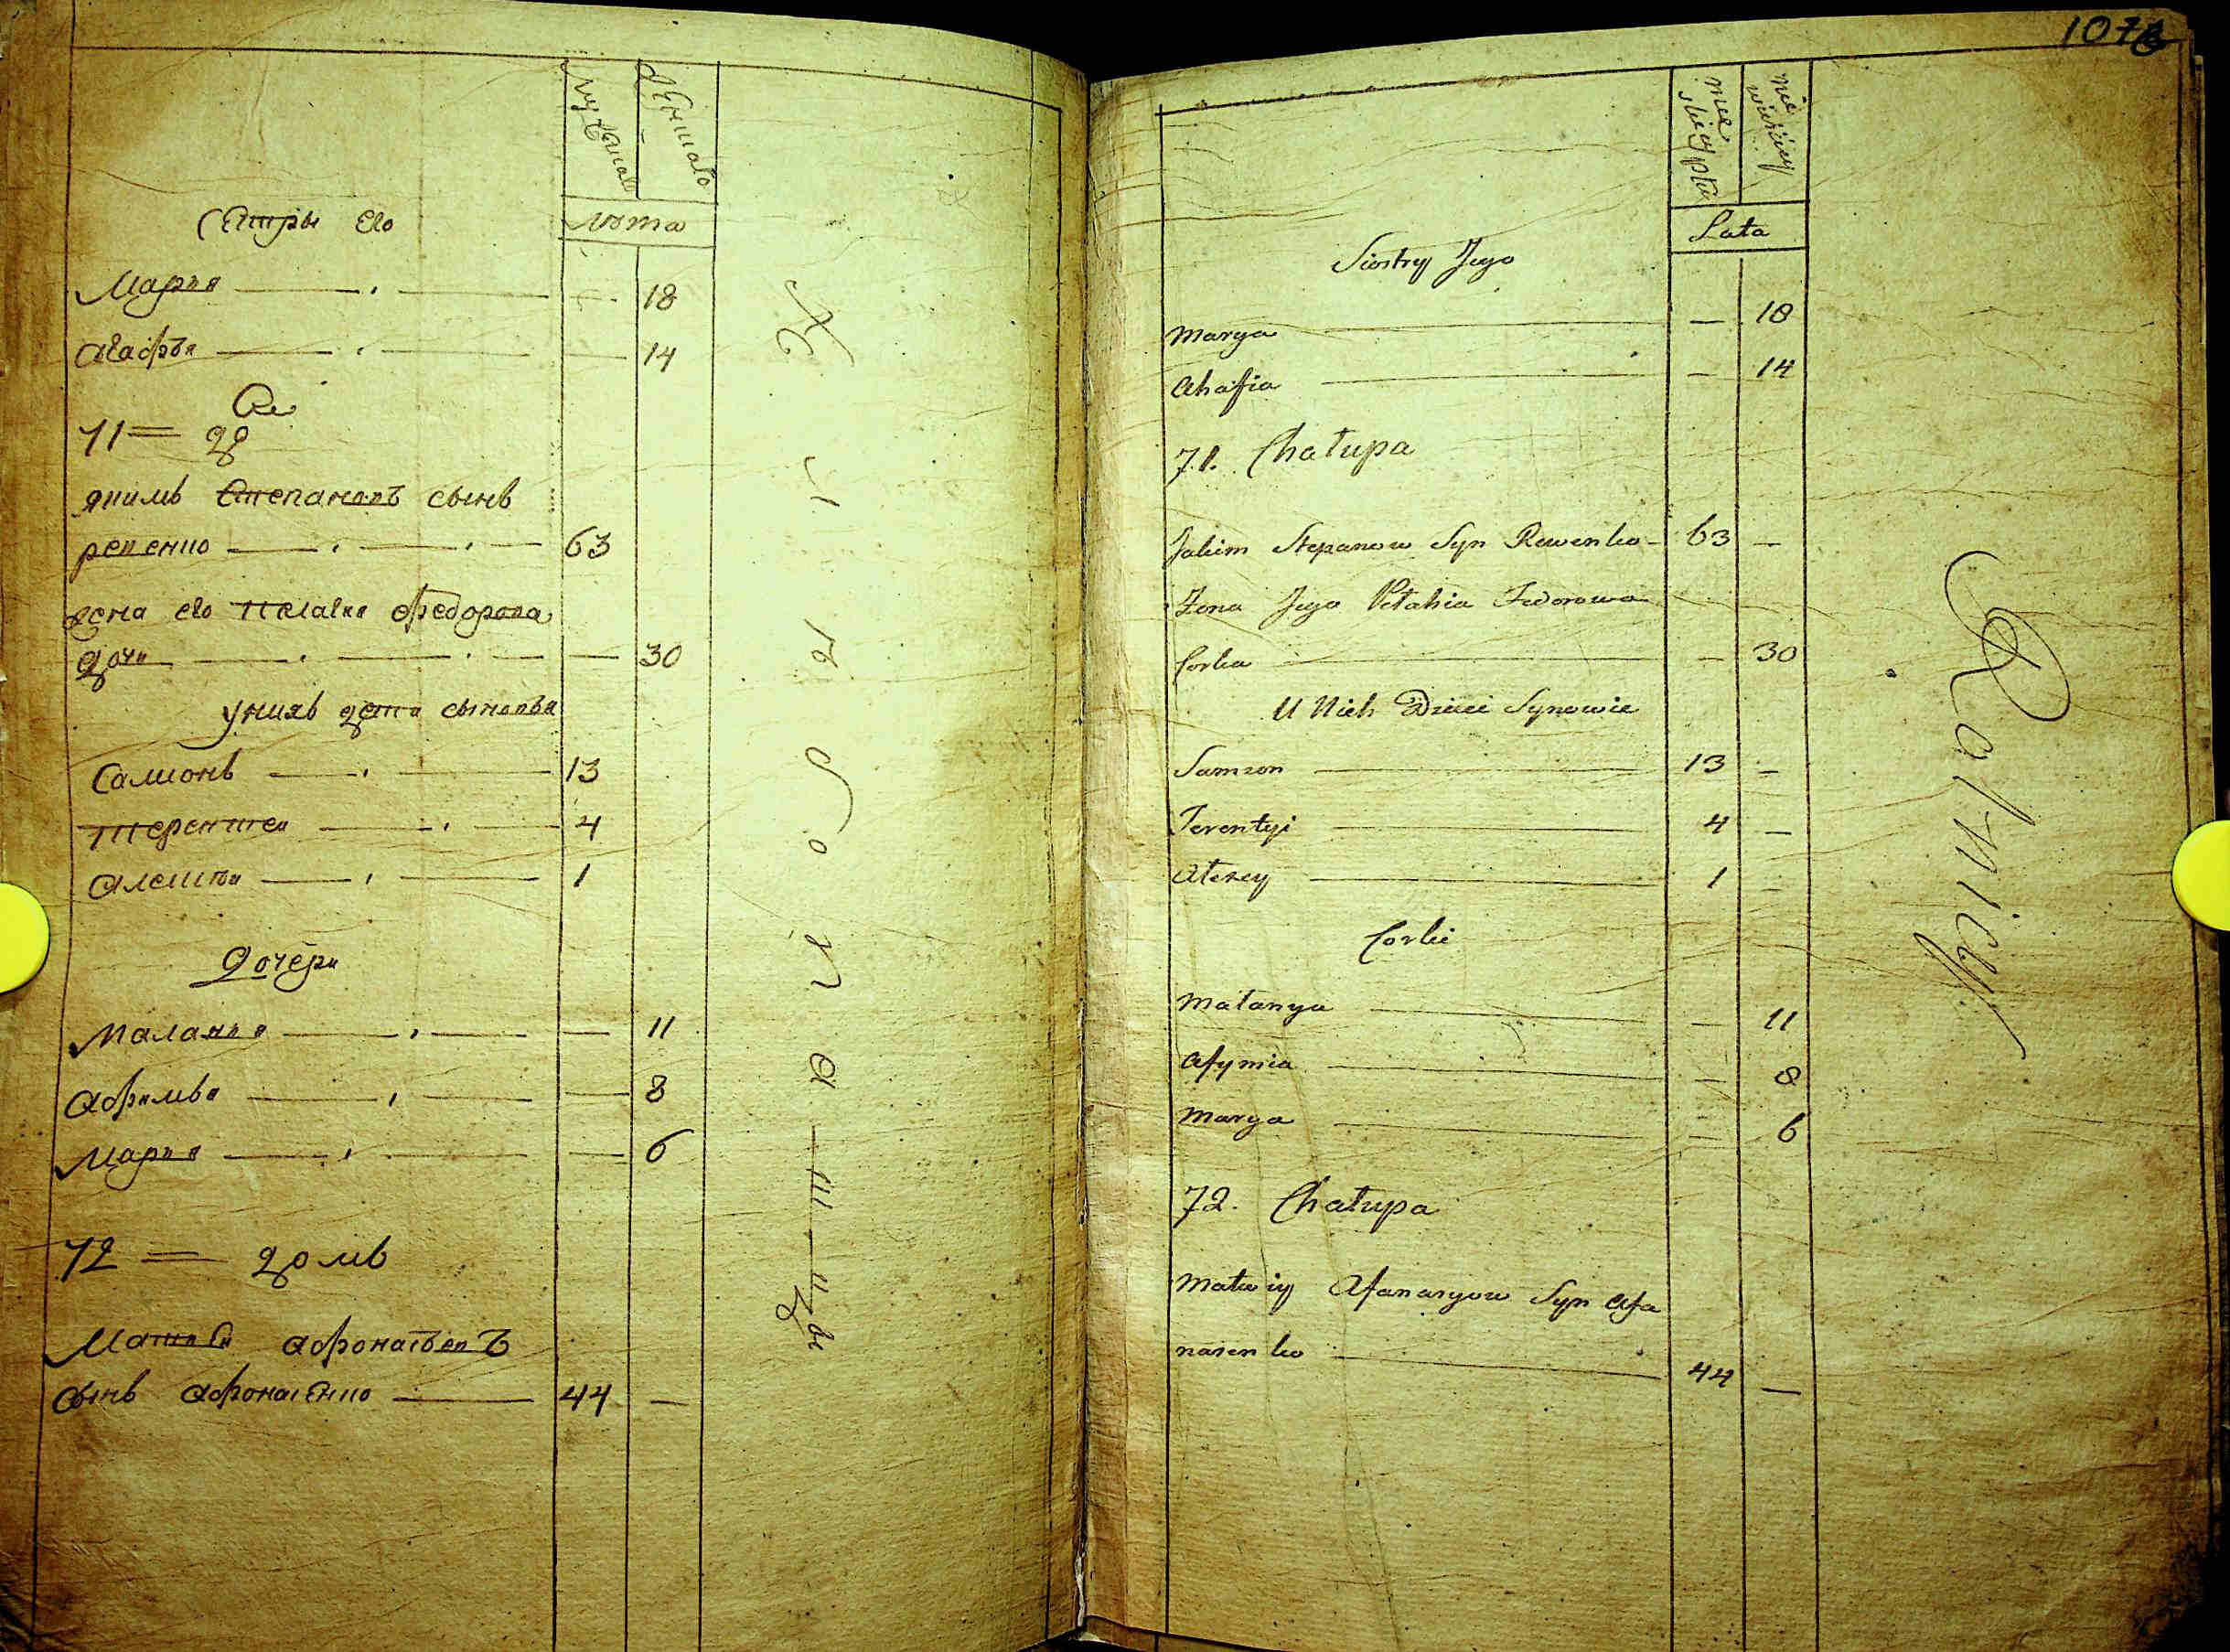 мужска
женска
лѣта
Сестры его
Мария — — 18
Агафья — — 14
71 =
якимъ Степановъ сынъ
ревенко — 63
жена его пелагия федорова
дочь — — 30
у нихъ дети сыновья
Самсонъ — 13
терентей — 4
алексѣи — 1
дочери
малания — — 11
афимья — — 8
Мария — — 6
72 = домъ
Матвѣи афонасьевъ
сынъ афонасенко — 44 —
Хлѣбопашцы
107
męskiey płci
niewieściey
Lata
Siostry Jego
Marya — 18
Ahafia — 14
71. Chałupa
Jakim Stepanow Syn Rewenko — 63 —
Żona Jego Pełahia Fedorowa
Corka — 30
U Nich Dzieci Synowie
Samson 13 —
Terentyi 4 —
Alexey 1 —
Corki
Małanya — 11
Afymia — 8
Marya — 6
72. Chałupa
Matwiy Afanasyow Syn Afa
nasenko 44 —
Rolnicy